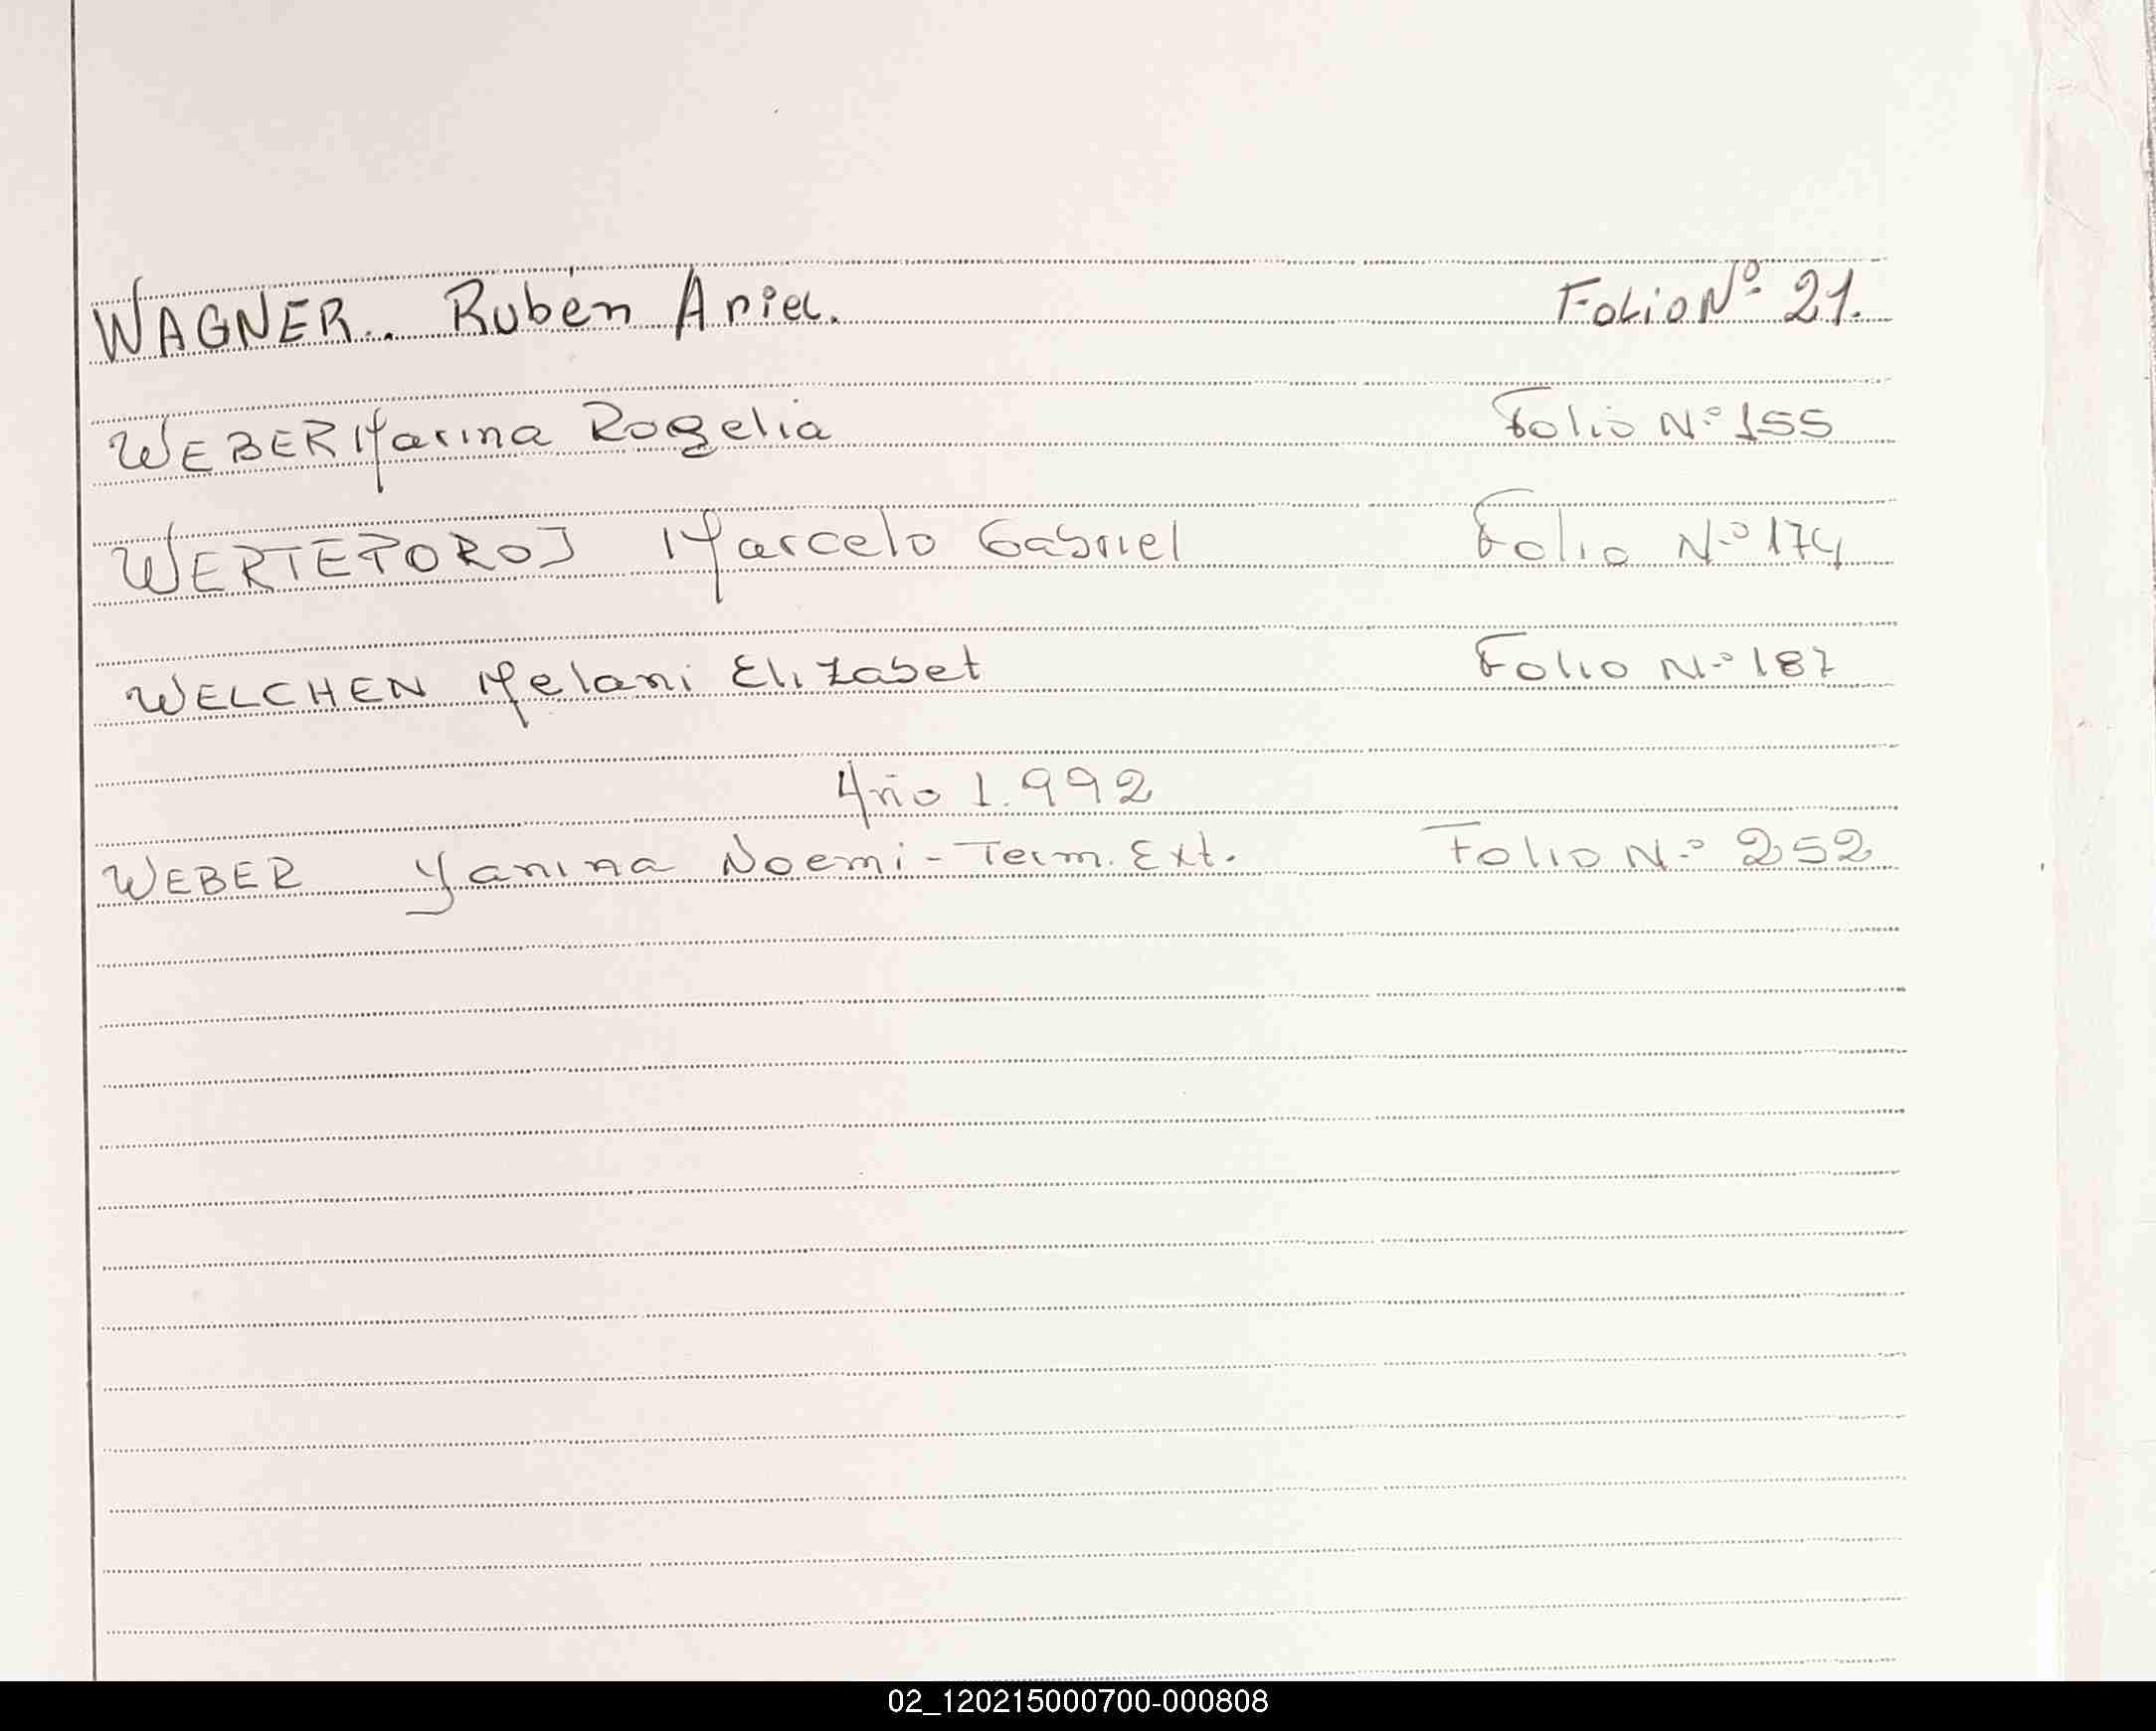 WAGNER.. Rubén Ariel. Folio Nº 21.
WEBER Marina Rogelia Folio Nº 155
WERTEPOROJ Marcelo Gabriel Folio Nº 174
WELCHEN Melani Elizabet Folio Nº 187
Año 1.992
WEBER Yanina Noemi - Term. Ext. Folio Nº 252
02_120215000700-000808